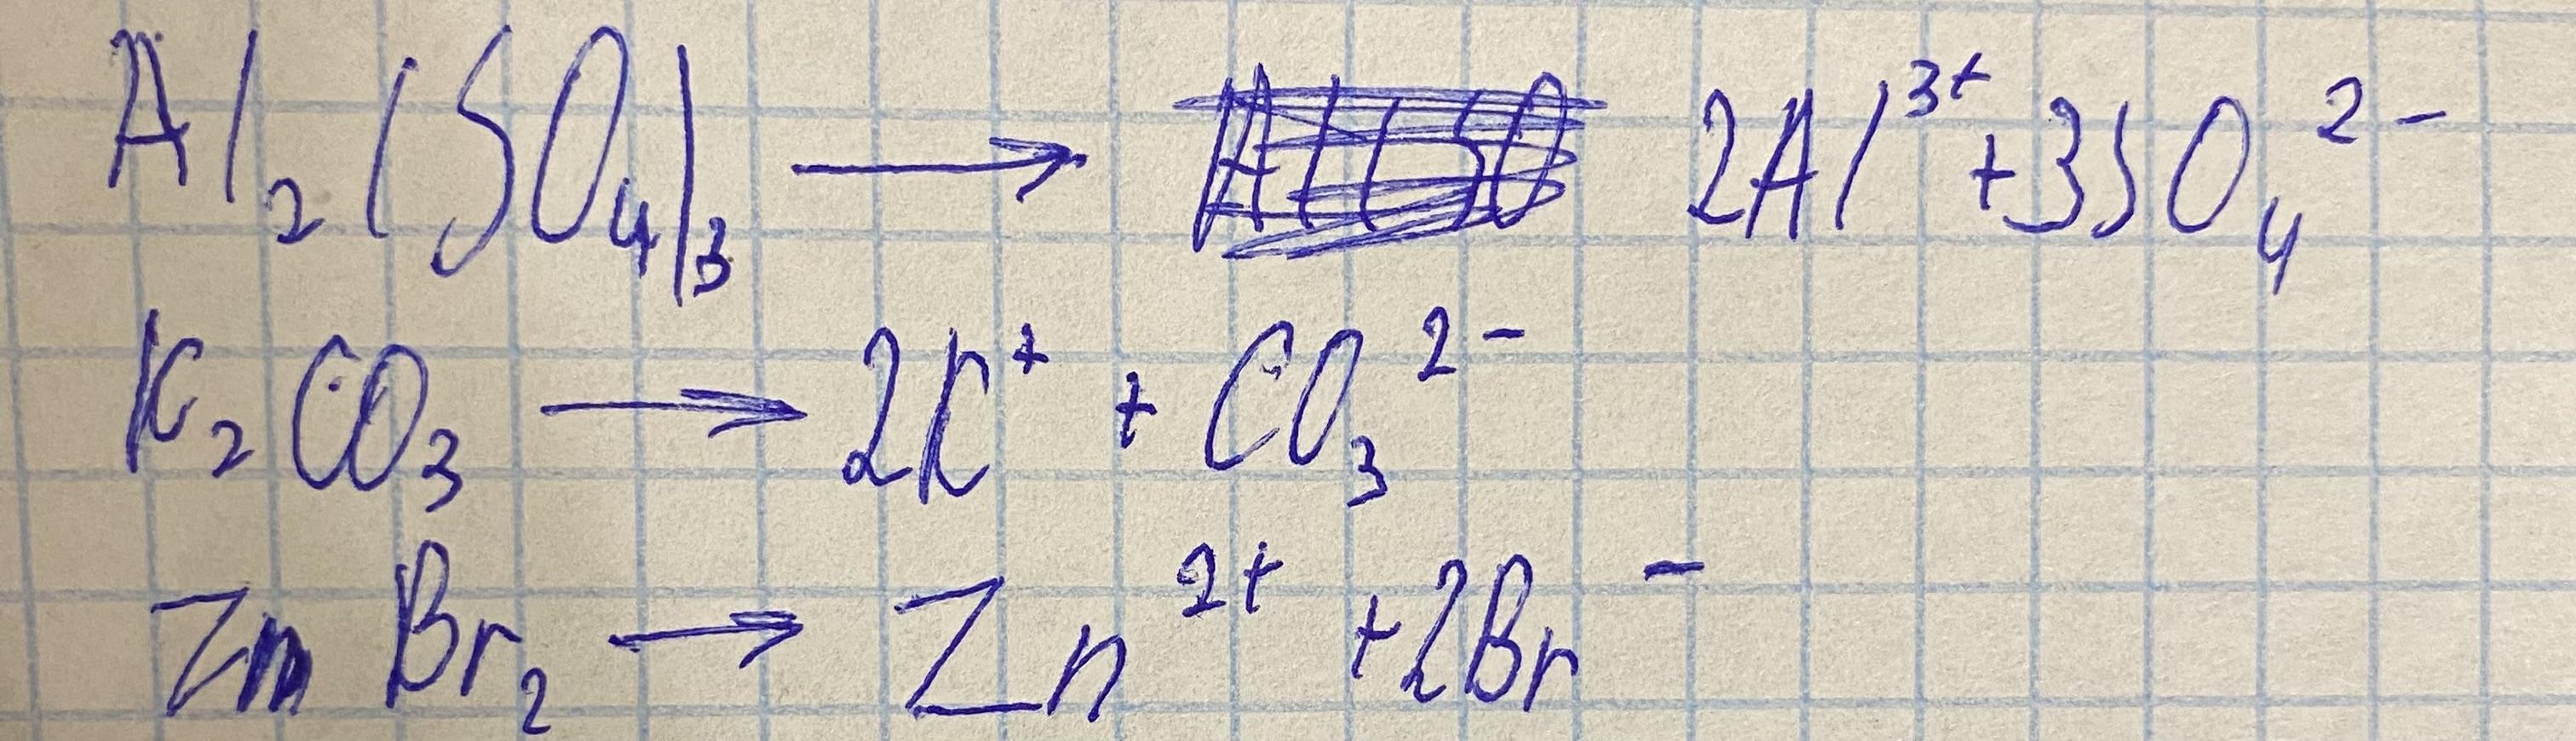 Al₂(SO₄)₃ → 2Al³⁺+3SO₄²⁻
K₂CO₃ → 2K⁺ + CO₃²⁻
Zn Br₂ → Zn²⁺ +2Br⁻